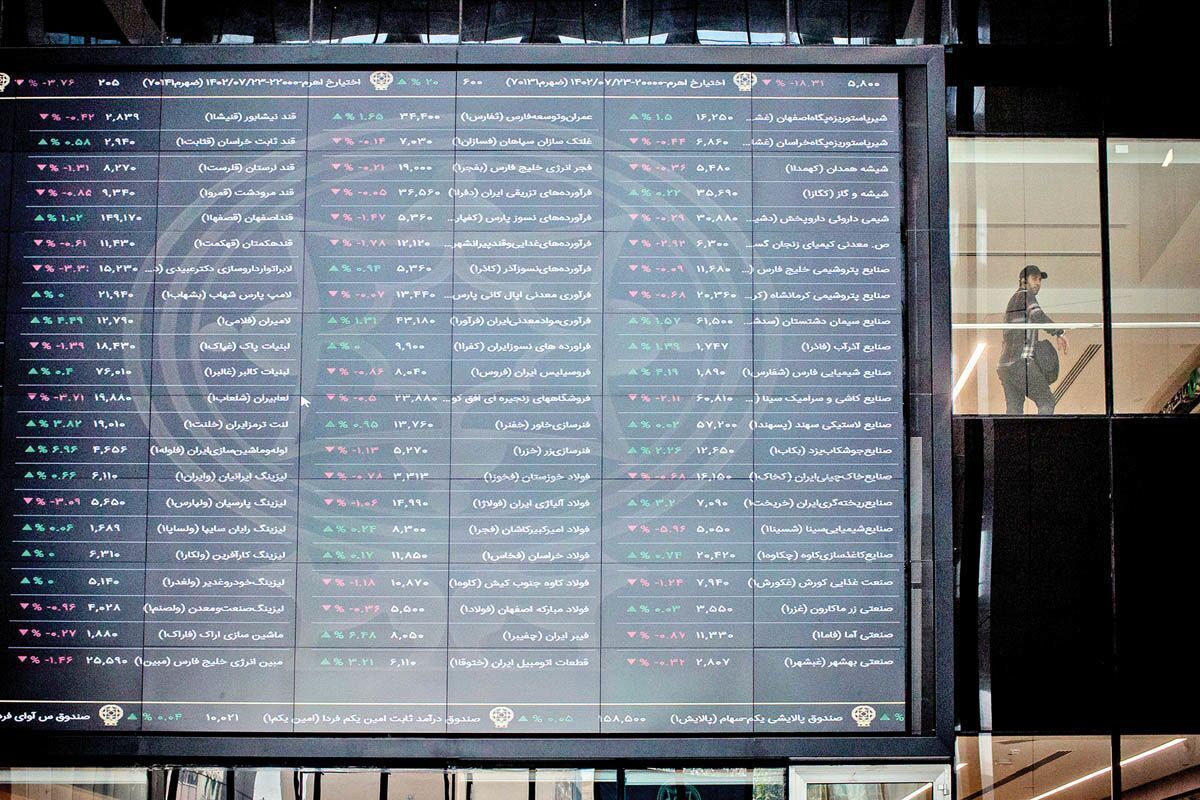 ۵,۸۰۰ -۱۸.۳۱ % ▼ اختیارخ اهرم-۲۰۰۰۰-۱۴۰۲/۰۷/۲۳ (ضهرم۷۰۱۳۱) ۶۰۰ ۲۰ % ▲ اختیارخ اهرم-۲۲۰۰۰-۱۴۰۲/۰۷/۲۳ (ضهرم۷۰۱۴۱) ۲۰۵ -۳.۷۶ % ▼
شیرپاستوریزه‌پگاه‌اصفهان (غش... ۱۶,۲۵۰ ۱.۵ % ▲ عمران‌وتوسعه‌فارس (ثفارس۱) ۳۴,۴۰۰ ۱.۶۵ % ▲ قند نیشابور (قنیشا۱) ۲,۸۳۹ -۰.۴۲ % ▼
شیرپاستوریزه‌پگاه‌خراسان (غشا... ۶,۸۶۰ -۰.۴۴ % ▼ غلتک سازان سپاهان (فسازان۱) ۷,۰۳۰ -۰.۱۴ % ▼ قند ثابت خراسان (قثابت۱) ۲,۹۴۰ ۰.۵۸ % ▲
شیشه همدان (کهمدا۱) ۵,۴۸۰ -۰.۳۶ % ▼ فجر انرژی خلیج فارس (بفجر۱) ۱۹,۰۰۰ -۰.۲۱ % ▼ قند لرستان (قلرست۱) ۸,۲۷۰ -۱.۳۱ % ▼
شیشه و گاز (کگاز۱) ۳۵,۶۹۰ ۰.۲۲ % ▲ فرآورده‌های تزریقی ایران (دفرا۱) ۳۶,۵۶۰ -۰.۰۵ % ▼ قند مرودشت (قمرو۱) ۹,۳۴۰ -۰.۸۵ % ▼
شیمی داروئی داروپخش (دشی... ۳۰,۸۸۰ -۰.۲۹ % ▼ فرآورده‌های نسوز پارس (کفپار... ۵,۳۶۰ -۱.۴۷ % ▼ قنداصفهان (قصفها۱) ۱۴۹,۱۷۰ ۱.۰۲ % ▲
ص. معدنی کیمیای زنجان گس... ۶,۳۰۰ -۲.۹۲ % ▼ فرآورده‌های‌غذایی‌وقندپیرانشهر... ۱۲,۱۲۰ -۱.۷۸ % ▼ قندهکمتان (قهکمت۱) ۱۱,۴۳۰ -۰.۶۱ % ▼
صنایع پتروشیمی خلیج فارس (... ۱۱,۶۸۰ -۰.۰۹ % ▼ فرآورده‌های‌نسوزآذر (کاذر۱) ۵,۳۶۰ ۰.۹۴ % ▲ لابراتوارداروسازی دکترعبیدی (د... ۱۵,۲۳۰
صنایع پتروشیمی کرمانشاه (کر... ۲۰,۳۶۰ -۰.۶۸ % ▼ فرآوری معدنی اپال کانی پارس... ۱۳,۴۴۰ -۰.۰۷ % ▼ لامپ پارس شهاب (بشهاب۱) ۲۱,۹۴۰ ۰ % ▲
صنایع سیمان دشتستان (سدشت... ۶۱,۵۰۰ ۱.۵۷ % ▲ فرآوری‌موادمعدنی‌ایران (فرآور۱) ۴۳,۱۸۰ ۱.۳۱ % ▲ لامیران (فلامی۱) ۱۲,۷۹۰ ۴.۴۹ % ▲
صنایع آذرآب (فاذر۱) ۱,۷۴۷ ۱.۳۹ % ▲ فراورده های نسوزایران (کفرا۱) ۹,۹۰۰ ۰ % ▲ لبنیات پاک (غپاک۱) ۱۸,۴۳۰ -۱.۳۹ % ▼
صنایع شیمیایی فارس (شفارس۱) ۱,۸۹۰ ۴.۱۹ % ▲ فروسیلیس ایران (فروس۱) ۸,۰۴۰ -۰.۸۶ % ▼ لبنیات کالبر (غالبر۱) ۷۶,۰۱۰ ۰.۴ % ▲
صنایع کاشی و سرامیک سینا (... ۶۰,۸۱۰ -۲.۱۱ % ▼ فروشگاههای زنجیره ای افق کو... ۲۳,۸۸۰ -۰.۵ % ▼ لعابیران (شلعاب۱) ۱۹,۸۸۰ -۳.۷۱ % ▼
صنایع لاستیکی سهند (پسهند۱) ۵۷,۲۰۰ ۰.۰۲ % ▲ فنرسازی‌خاور (خفنر۱) ۱۳,۷۶۰ ۰.۹۵ % ▲ لنت ترمزایران (خلنت۱) ۱۹,۰۱۰ ۳.۸۲ % ▲
صنایع‌جوشکاب‌یزد (بکاب۱) ۱۲,۶۵۰ ۲.۲۶ % ▲ فنرسازی‌زر (خزر۱) ۵,۲۷۰ -۱.۱۳ % ▼ لوله‌وماشین‌سازی‌ایران (فلوله۱) ۴,۶۵۶ ۶.۹۶ % ▲
صنایع‌خاک‌چینی‌ایران (کخاک۱) ۱۶,۱۵۰ -۰.۶۸ % ▼ فولاد خوزستان (فخوز۱) ۳,۳۱۳ -۰.۷۸ % ▼ لیزینگ ایرانیان (وایران۱) ۶,۱۱۰ ۰.۶۶ % ▲
صنایع‌ریخته‌گری‌ایران (خریخت۱) ۷,۰۹۰ ۳.۲ % ▲ فولاد آلیاژی ایران (فولاژ۱) ۱۴,۹۹۰ -۱.۰۶ % ▼ لیزینگ پارسیان (ولپارس۱) ۵,۶۵۰ -۳.۰۹ % ▼
صنایع‌شیمیایی‌سینا (شسینا۱) ۵,۰۵۰ -۵.۹۶ % ▼ فولاد امیرکبیرکاشان (فجر۱) ۸,۳۰۰ ۰.۲۴ % ▲ لیزینگ رایان سایپا (ولساپا۱) ۱,۶۸۹ ۰.۰۶ % ▲
صنایع‌کاغذسازی‌کاوه (چکاوه۱) ۲۰,۴۲۰ ۰.۷۴ % ▲ فولاد خراسان (فخاس۱) ۱۱,۸۵۰ ۰.۱۷ % ▲ لیزینگ کارآفرین (ولکار۱) ۶,۳۱۰ ۰ % ▲
صنعت غذایی کورش (غکورش۱) ۷,۹۴۰ -۱.۲۴ % ▼ فولاد کاوه جنوب کیش (کاوه۱) ۱۰,۸۷۰ -۱.۱۸ % ▼ لیزینگ‌خودروغدیر (ولغدر۱) ۵,۱۴۰ ۰ % ▲
صنعتی زر ماکارون (غزر۱) ۳,۵۵۰ ۰.۰۳ % ▲ فولاد مبارکه اصفهان (فولاد۱) ۵,۵۰۰ -۰.۳۶ % ▼ لیزینگ‌صنعت‌ومعدن (ولصنم۱) ۴,۰۲۸ -۰.۹۶ % ▼
صنعتی آما (فاما۱) ۱۱,۳۳۰ -۰.۸۷ % ▼ فیبر ایران (چفیبر۱) ۸,۰۵۰ ۶.۴۸ % ▲ ماشین سازی اراک (فاراک۱) ۱,۸۸۰ -۰.۲۷ % ▼
صنعتی بهشهر (غبشهر۱) ۲,۸۰۷ -۰.۳۲ % ▼ قطعات اتومبیل ایران (ختوقا۱) ۶,۱۱۰ ۳.۲۱ % ▲ مبین انرژی خلیج فارس (مبین۱) ۲۵,۵۹۰ -۱.۴۶ % ▼
% ▲ صندوق پالایشی یکم-سهام (پالایش۱) ۱۵۸,۵۰۰ ۰.۰۵ % ▲ صندوق درآمد ثابت امین یکم فردا (امین یکم۱) ۱۰,۰۲۱ ۰.۰۴ % ▲ صندوق س آوای فرد